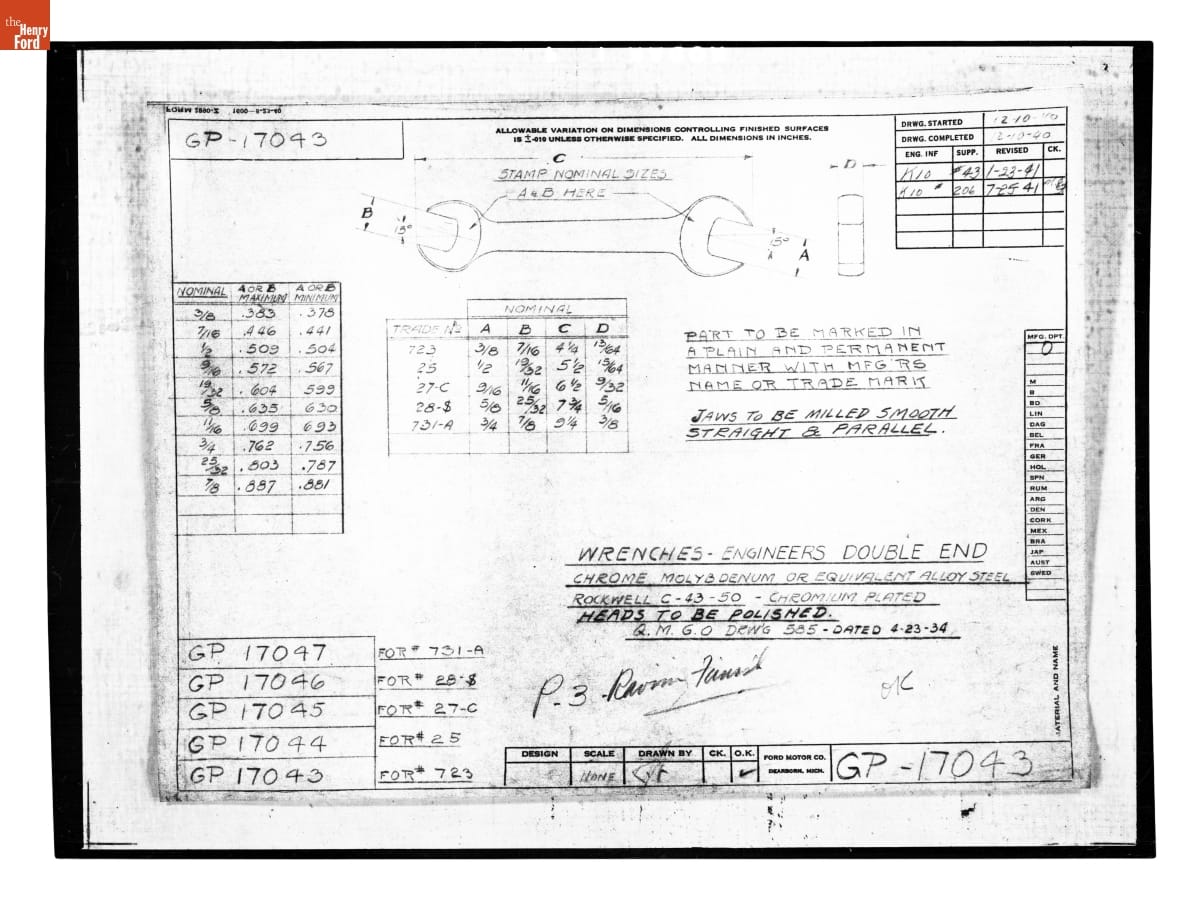 the
Henry
Ford
FORM 2880-Z 1000-8-23-40
GP-17043
ALLOWABLE VARIATION ON DIMENSIONS CONTROLLING FINISHED SURFACES
IS ±.010 UNLESS OTHERWISE SPECIFIED. ALL DIMENSIONS IN INCHES.
DRWG. STARTED 12-10-40
DRWG. COMPLETED 2-10-40
ENG. INF SUPP. REVISED CK.
K10 #43 1-23-41
K10 # 206 7-25 41
C
STAMP NOMINAL SIZES
A & B HERE
B
15°
15°
A
D
NOMINAL A OR B MAXIMUM A OR B MINIMUM
3/8 .383 .378
7/16 .446 .441
1/2 .509 .504
9/16 .572 .567
19/32 .604 599
5/8 .635 630
11/16 .699 693
3/4 .762 .756
25/32 .803 .787
7/8 .887 .881
NOMINAL
TRADE Nº A B C D
723 3/8 7/16 4 1/4 13/64
25 1/2 19/32 5 1/2 15/64
27-C 9/16 11/16 6 1/2 9/32
28-S 5/8 25/32 7 3/4 5/16
731-A 3/4 7/8 9 1/4 3/8
PART TO BE MARKED IN
A PLAIN AND PERMANENT
MANNER WITH MFG'RS
NAME OR TRADE MARK
JAWS TO BE MILLED SMOOTH
STRAIGHT & PARALLEL.
MFG. DPT.
O
M
B
BD
LIN
DAG
BEL
FRA
GER
HOL
SPN
RUM
ARG
DEN
CORK
MEX
BRA
JAP
AUST
SWED
WRENCHES - ENGINEERS DOUBLE END
CHROME, MOLYBDENUM OR EQUIVALENT ALLOY STEEL
ROCKWELL C-43-50 - CHROMIUM PLATED
HEADS TO BE POLISHED.
Q.M.G.O DRW'G 585 - DATED 4-23-34
GP 17047 FOR # 731-A
GP 17046 FOR # 28-S
GP 17045 FOR # 27-C
GP 17044 FOR # 25
GP 17043 FOR # 723
P-3
OK
MATERIAL AND NAME
DESIGN SCALE DRAWN BY CK. O.K.
NONE
FORD MOTOR CO.
DEARBORN, MICH.
GP-17043